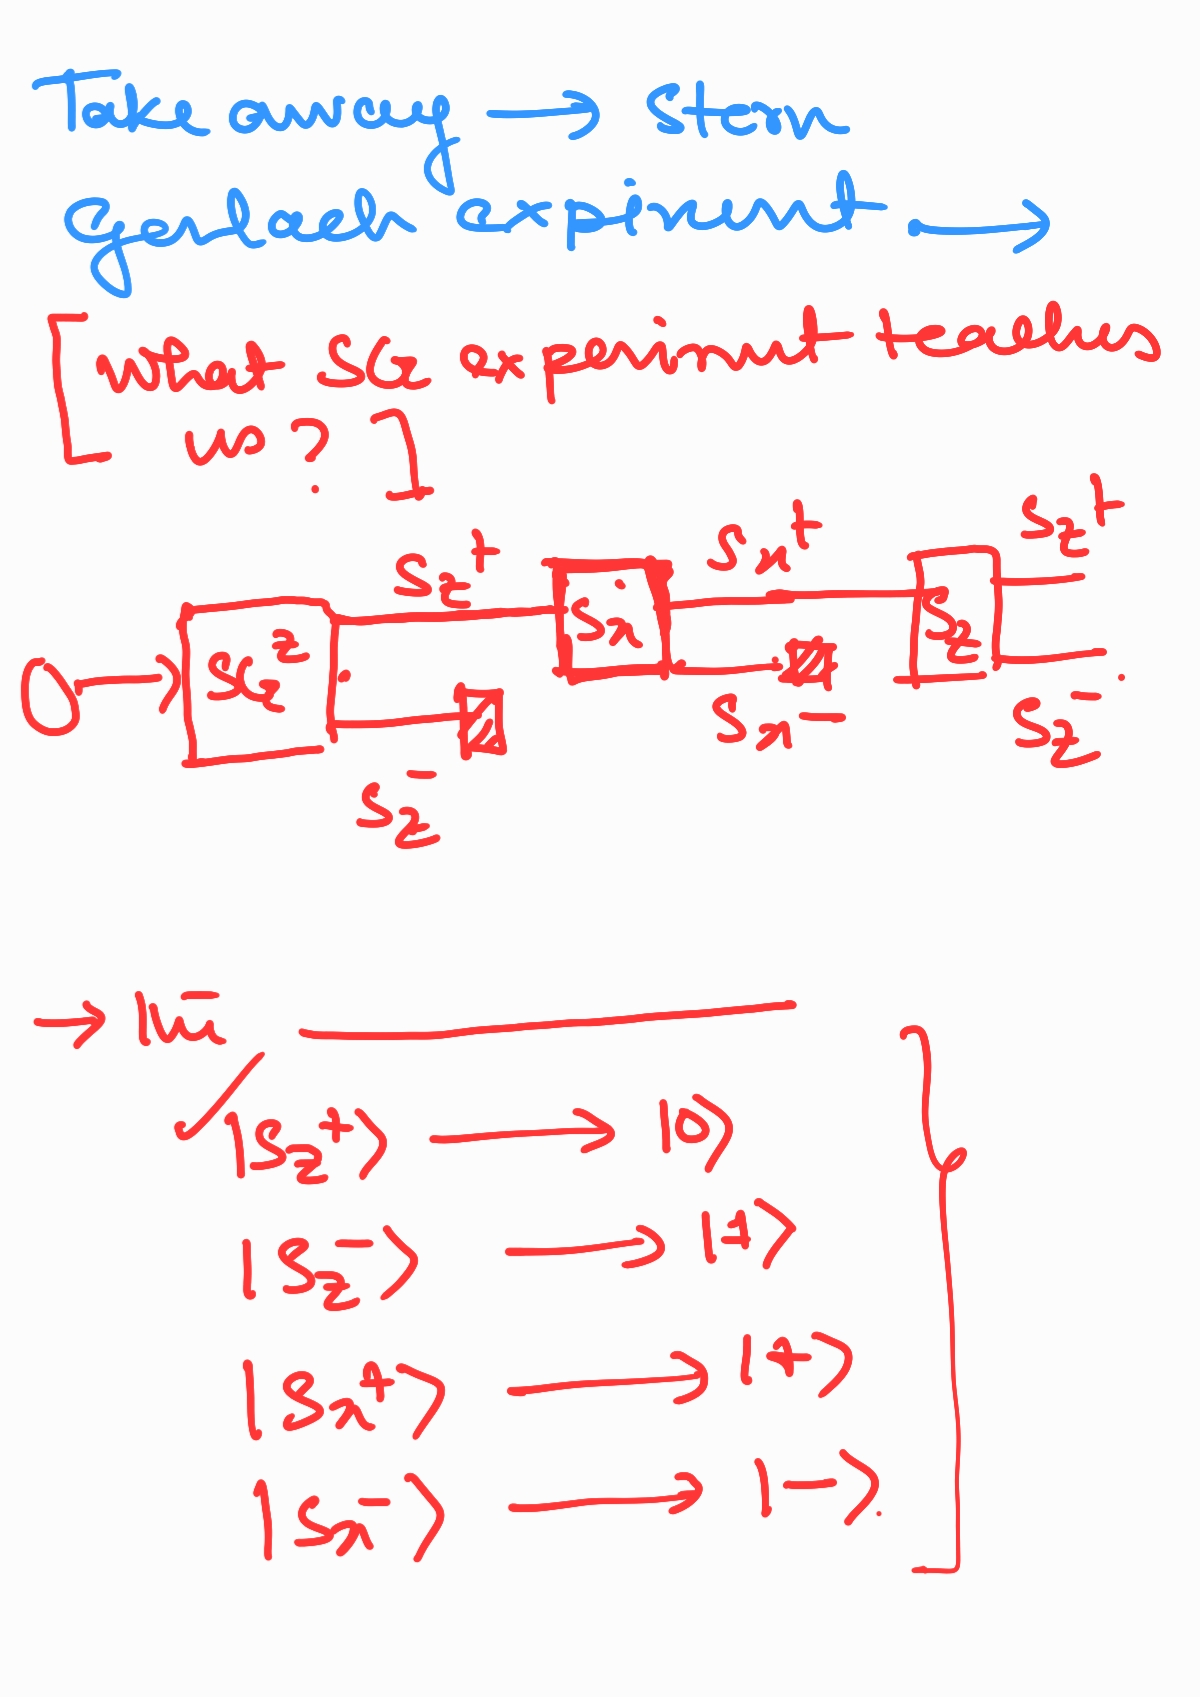 Take away → Stern
Gerlach expiment →
[What SG experiment teaches
us?]
Sz+ Sx+ Sz+
SGz Sx Sz
Sz- Sx- Sz-
→
|Sz+⟩ → |0⟩
|Sz-⟩ → |1⟩
|Sx+⟩ → |+⟩
|Sx-⟩ → |-⟩.